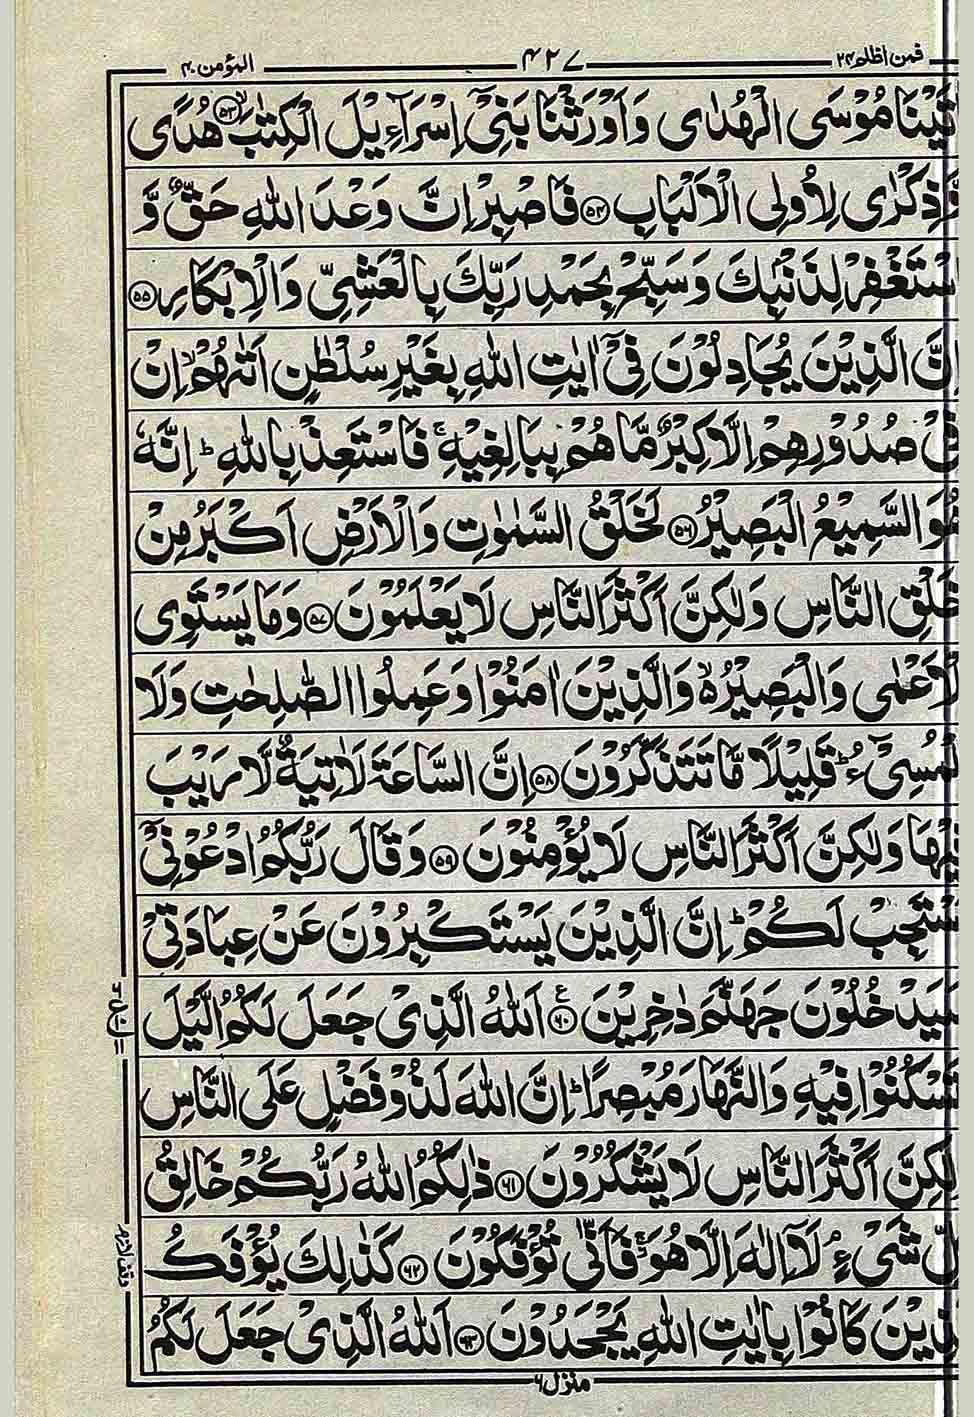 فمن اظلم ۲۴ ۴۲۷ المؤمن ۴۰
اٰتَيْنَا مُوْسَى الْهُدٰى وَاَوْرَثْنَا بَنِيْٓ اِسْرَآءِيْلَ الْكِتٰبَ ۙ‏﴿۵۳﴾ هُدًى
وَّذِكْرٰى لِاُولِى الْاَلْبَابِ ﴿۵۴﴾ فَاصْبِرْ اِنَّ وَعْدَ اللّٰهِ حَقٌّ وَّ
اسْتَغْفِرْ لِذَنْۢبِكَ وَسَبِّحْ بِحَمْدِ رَبِّكَ بِالْعَشِىِّ وَالْاِبْكَارِ ﴿۵۵﴾
اِنَّ الَّذِيْنَ يُجَادِلُوْنَ فِيْٓ اٰيٰتِ اللّٰهِ بِغَيْرِ سُلْطٰنٍ اَتٰىهُمْ ۙ اِنْ
فِيْ صُدُوْرِهِمْ اِلَّا كِبْرٌ مَّا هُمْ بِبَالِغِيْهِ ۚ فَاسْتَعِذْ بِاللّٰهِ ؕ اِنَّهٗ
هُوَ السَّمِيْعُ الْبَصِيْرُ ﴿۵۶﴾ لَخَلْقُ السَّمٰوٰتِ وَالْاَرْضِ اَكْبَرُ مِنْ
خَلْقِ النَّاسِ وَلٰكِنَّ اَكْثَرَ النَّاسِ لَا يَعْلَمُوْنَ ﴿۵۷﴾ وَمَا يَسْتَوِى
الْاَعْمٰى وَالْبَصِيْرُ ۙ۬ وَالَّذِيْنَ اٰمَنُوْا وَعَمِلُوا الصّٰلِحٰتِ وَلَا
الْمُسِيْٓءُ ؕ قَلِيْلًا مَّا تَتَذَكَّرُوْنَ ﴿۵۸﴾ اِنَّ السَّاعَةَ لَاٰتِيَةٌ لَّا رَيْبَ
فِيْهَا وَلٰكِنَّ اَكْثَرَ النَّاسِ لَا يُؤْمِنُوْنَ ﴿۵۹﴾ وَقَالَ رَبُّكُمُ ادْعُوْنِيْٓ
اَسْتَجِبْ لَكُمْ ؕ اِنَّ الَّذِيْنَ يَسْتَكْبِرُوْنَ عَنْ عِبَادَتِيْ
سَيَدْخُلُوْنَ جَهَنَّمَ دٰخِرِيْنَ ﴿۶۰﴾ ع اَللّٰهُ الَّذِيْ جَعَلَ لَكُمُ الَّيْلَ
لِتَسْكُنُوْا فِيْهِ وَالنَّهَارَ مُبْصِرًا ؕ اِنَّ اللّٰهَ لَذُوْ فَضْلٍ عَلَى النَّاسِ
وَلٰكِنَّ اَكْثَرَ النَّاسِ لَا يَشْكُرُوْنَ ﴿۶۱﴾ ذٰلِكُمُ اللّٰهُ رَبُّكُمْ خَالِقُ
كُلِّ شَيْءٍ ۘ لَآ اِلٰهَ اِلَّا هُوَ ۚ فَاَنّٰى تُؤْفَكُوْنَ ﴿۶۲﴾ كَذٰلِكَ يُؤْفَكُ
الَّذِيْنَ كَانُوْا بِاٰيٰتِ اللّٰهِ يَجْحَدُوْنَ ﴿۶۳﴾ اَللّٰهُ الَّذِيْ جَعَلَ لَكُمُ
منزل ۶